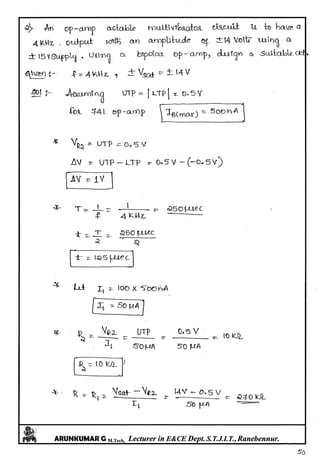 2) An op-amp astable multivibrator circuit is to have a
4 KHz. output with an amplitude of ±14 volts using a
±15V supply. using a bipolar op-amp, design a suitable ckt.
Given :- f = 4 KHz , ± Vsat = ± 14 V
Sol :- Assuming UTP = |LTP| = 0.5 V
for 741 op-amp IB(max) = 500 nA
* VR2 = UTP = 0.5 V
ΔV = UTP - LTP = 0.5 V - (-0.5 V)
ΔV = 1V
* T = 1/f = 1/4 KHz = 250 μsec
t = T/2 = 250 μsec/2
t = 125 μsec
* Let I1 = 100 x 500nA
I1 = 50 μA
* R2 = VR2/I1 = UTP/50 μA = 0.5 V/50 μA = 10 KΩ
R2 = 10 KΩ
* R = R1 = Vsat - VR2/I1 = 14V - 0.5 V/50 μA = 270 KΩ
ARUNKUMAR G M.Tech, Lecturer in E&CE Dept. S.T.J.I.T., Ranebennur.
50